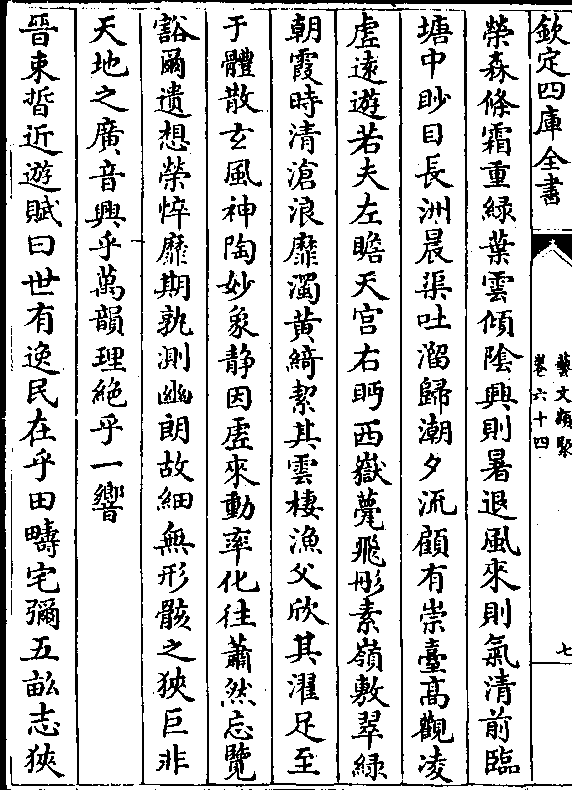 欽定四庫全書
藝文類聚
卷六十四
七
榮森條霜重綠葉雲傾陰興則暑退風來則氣清前臨
塘中眇目長洲晨渠吐溜歸潮夕流顧有崇臺高觀凌
虛遠遊若夫左瞻天宫右眄西嶽甍飛彤素嶺敷翠綠
朝霞時清滄浪靡濁黄綺絜其雲棲漁父欣其濯足至
于體散玄風神陶妙象静因虛來動率化往蕭然忘覽
豁爾遺想榮悴靡期孰測幽朗故細無形骸之狹巨非
天地之廣音興乎萬韻理絶乎一響
晉束晳近遊賦曰世有逸民在乎田疇宅彌五畝志狹